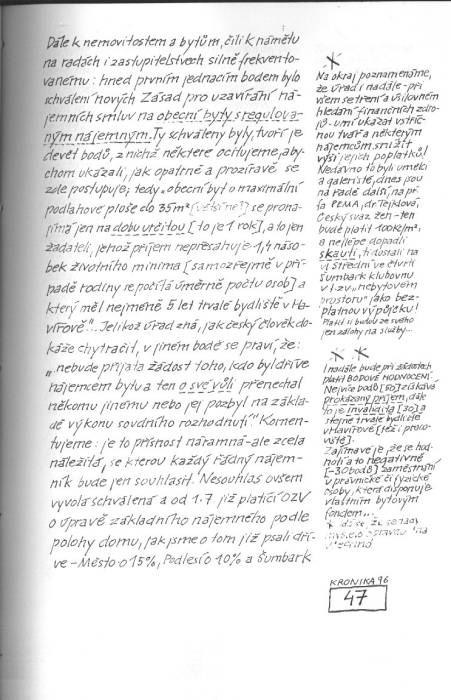 Dále k nemovitostem a bytům, čili k námětu
na radách i zastupitelstvech silně frekvento-
vanému: hned prvním jednacím bodem bylo
schválení nových Zásad pro uzavírání ná-
jemních smluv na obecní byty s regulova-
ným nájemným. Ty schváleny byly, tvoří je
devět bodů, z nichž některé ocitujeme, aby-
chom ukázali, jak opatrně a prozíravě se
zde postupuje; tedy „obecní byt o maximální
podlahové ploše do 35m² [většině!] se prona-
jímá jen na dobu určitou [to je 1 rok], a to jen
žadateli, jehož příjem nepřesahuje 1,4 náso-
bek životního minima [samozřejmě v pří-
padě rodiny se počítá úměrně počtu osob] a
který měl nejméně 5 let trvalé bydliště v Ha-
vířově". Jelikož úřad zná, jak český člověk do-
káže chytračit, v jiném bodě se praví, že:
„nebude přijata žádost toho, kdo byl dříve
nájemcem bytu a ten o své vůli přenechal
někomu jinému nebo jej pozbyl na zákla-
dě výkonu soudního rozhodnutí." Komen-
tujeme: je to přísnost náramná - ale zcela
náležitá, se kterou každý řádný nájem-
ník bude jen souhlasit. Nesouhlas ovšem
vyvolá schválená a od 1.7 již platící OZV
o úpravě základního nájemného podle
polohy domu, jak jsme o tom již psali dří-
ve - Město o 15%, Podlesí o 10% a Šumbark
*
Na okraj poznamenáme,
že úřad i nadále - při
všem šetření a úsilovném
hledání finančních zdro-
jů - umí ukázat vstříc-
nou tvář a některým
nájemcům snížit
výši jejich poplatků!
Nedávno to byli umělci
a galeristé, dnes jsou
na řadě další, na př.
fa PEMA, dr Tejklová,
Český svaz žen - ten
bude platit 100Kč/m²,
a nejlépe dopadli
skauti, ti dostali na
ul Střední ve čtvrti
Šumbark klubovnu
v t.zv „nebytovém
prostoru" jako bez-
platnou výpůjčku!
Platit si budou ze svého
jen zálohy na služby...
* *
I nadále bude při žádostech
platit BODOVÉ HODNOCENÍ.
Nejvíce bodů [50] získává
prokázaný příjem, dále
to je invalidita [30] a
stejně trvalé bydliště
v Havířově [též i praco-
viště].
Zajímavé je, že se hod-
notí a to negativně
[-30 bodů] zaměstnání
v právnické či fyzické
osoby, která disponuje
vlastním bytovým
fondem...
KRONIKA 96
47